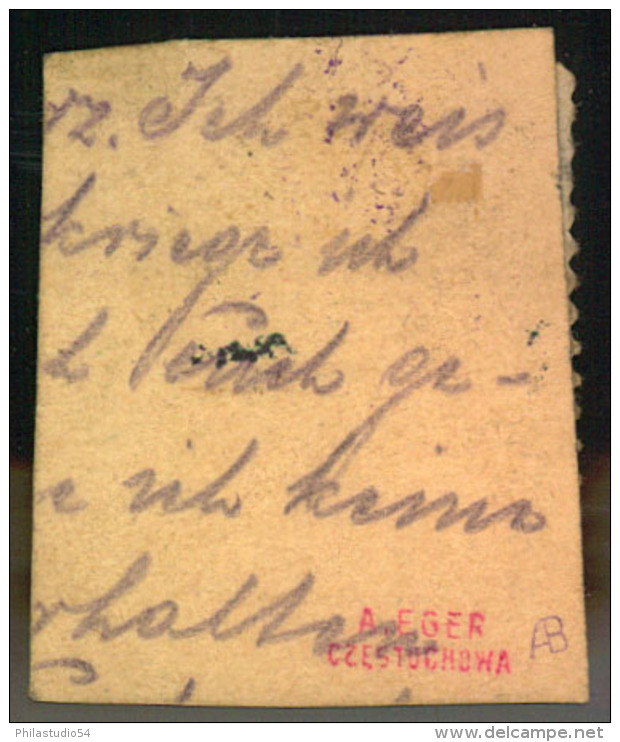 rz. Ich weis
kriege ich
ge-
ich keine
rhalten
A. EGER
CZĘSTOCHOWA
AB
Philastudio54
www.delcampe.net